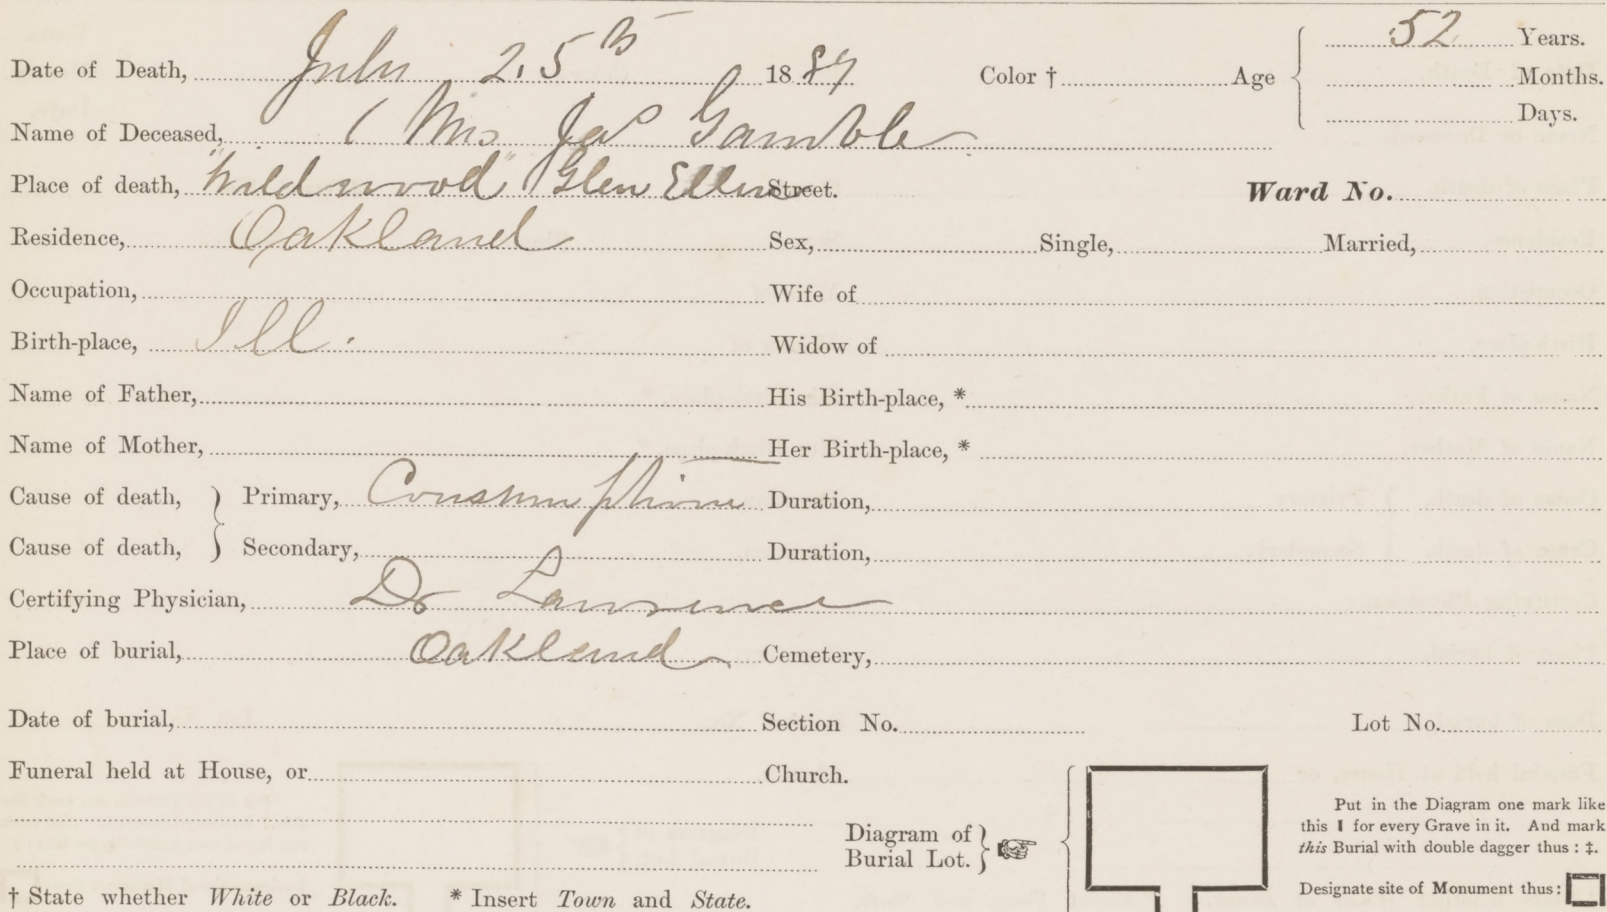 Date of Death, July 25th 1887 Color † Age 52 Years.
Months.
Days.
Name of Deceased, ( Mrs Jas Gamble
Place of death, "Wildwood" Glen Ellen Street. Ward No.
Residence, Oakland Sex, Single, Married,
Occupation, Wife of
Birth-place, Ill. Widow of
Name of Father, His Birth-place, *
Name of Mother, Her Birth-place, *
Cause of death, } Primary, Consumption Duration,
Cause of death, } Secondary, Duration,
Certifying Physician, Dr Lawrence
Place of burial, Oakland Cemetery,
Date of burial, Section No. Lot No.
Funeral held at House, or Church.
Diagram of
Burial Lot. }
Put in the Diagram one mark like
this I for every Grave in it. And mark
this Burial with double dagger thus : ‡.
Designate site of Monument thus :
† State whether White or Black. * Insert Town and State.